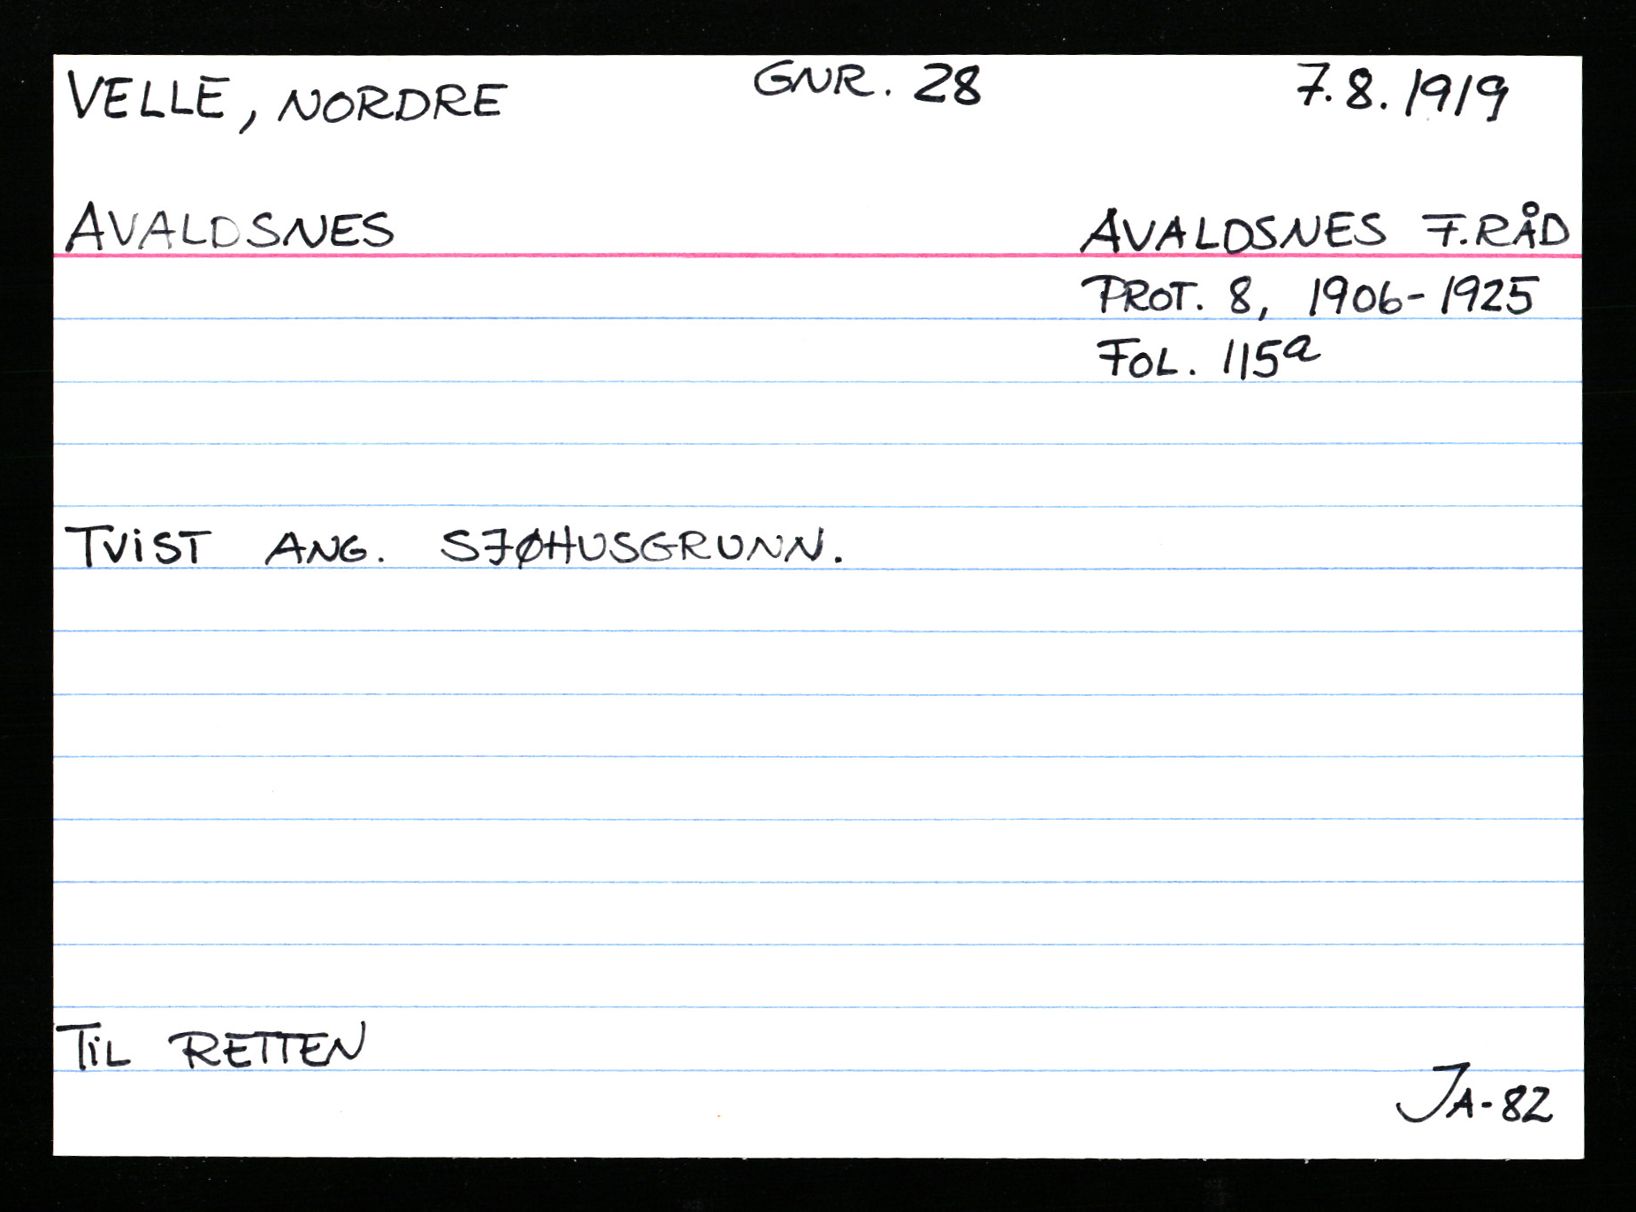 VELLE, NORDRE GNR. 28 7.8.1919
AVALDSNES AVALDSNES F.RÅD
PROT. 8, 1906-1925
FOL. 115a
TViST ANG. SJØHUSGRUNN.
TiL RETTEN
JA-82